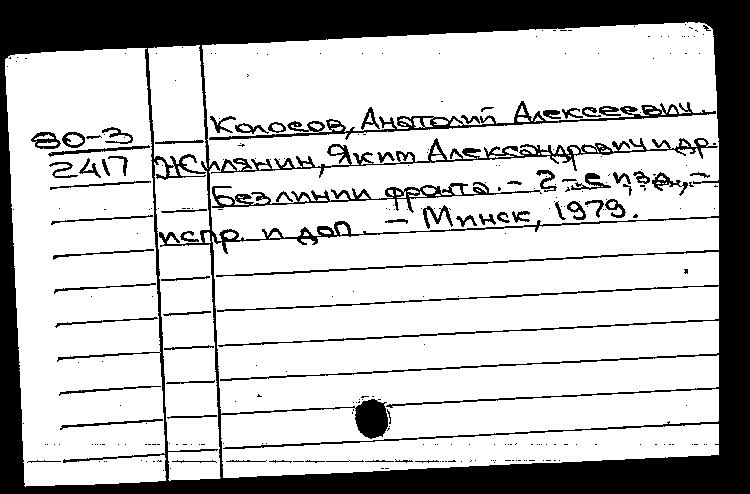 Колосов, Анатолий Алексеевич.
80-3
2417 Жилянин, Яким Александрович и др.
Без линии фронта. - 2-е изд., -
испр. и доп. - Минск, 1979.